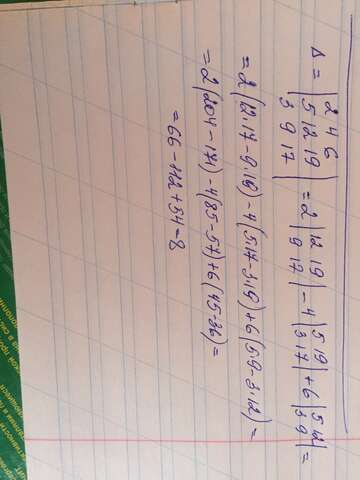 Δ = |2 4 6; 5 12 19; 3 9 17| = 2 |12 19; 9 17| - 4 |5 19; 3 17| + 6 |5 12; 3 9| =
= 2 (12.17 - 9.19) - 4 (5.17 - 3.19) + 6 (5.9 - 3.12) =
= 2 (204 - 171) - 4 (85 - 57) + 6 (45 - 36) =
= 66 - 112 + 54 = 8